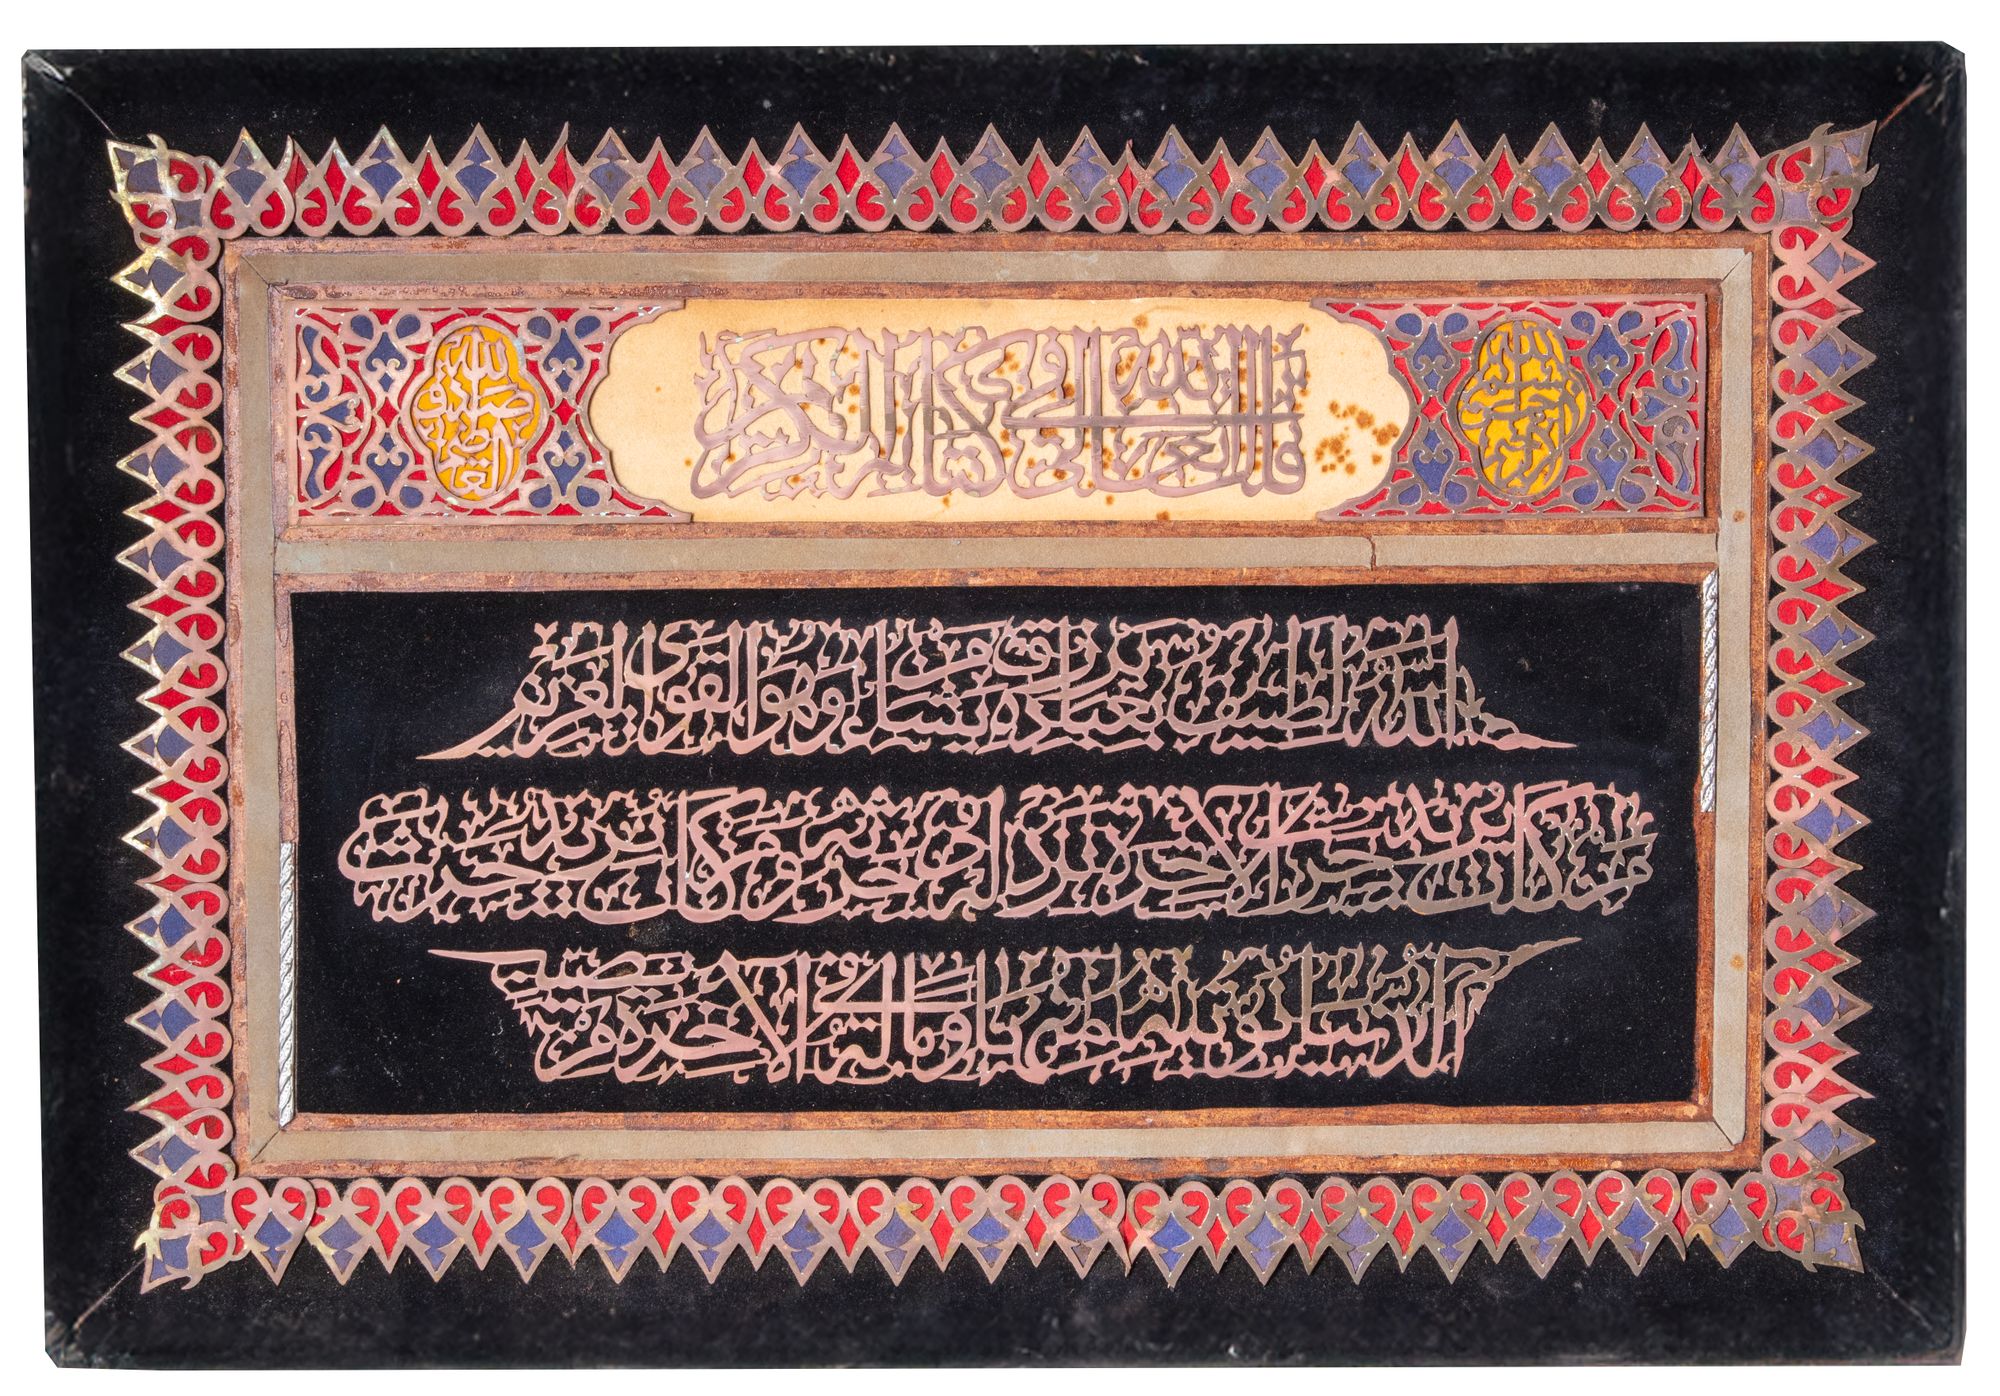 بسم الله الرحمن الرحيم
قال الله تعالى في كتابه الكريم
صدق الله العلي العظيم
الله لطيف بعباده يرزق من يشاء وهو القوي العزيز
من كان يريد حرث الآخرة نزد له في حرثه ومن كان يريد حرث
الدنيا نؤته منها وما له في الآخرة من نصيب